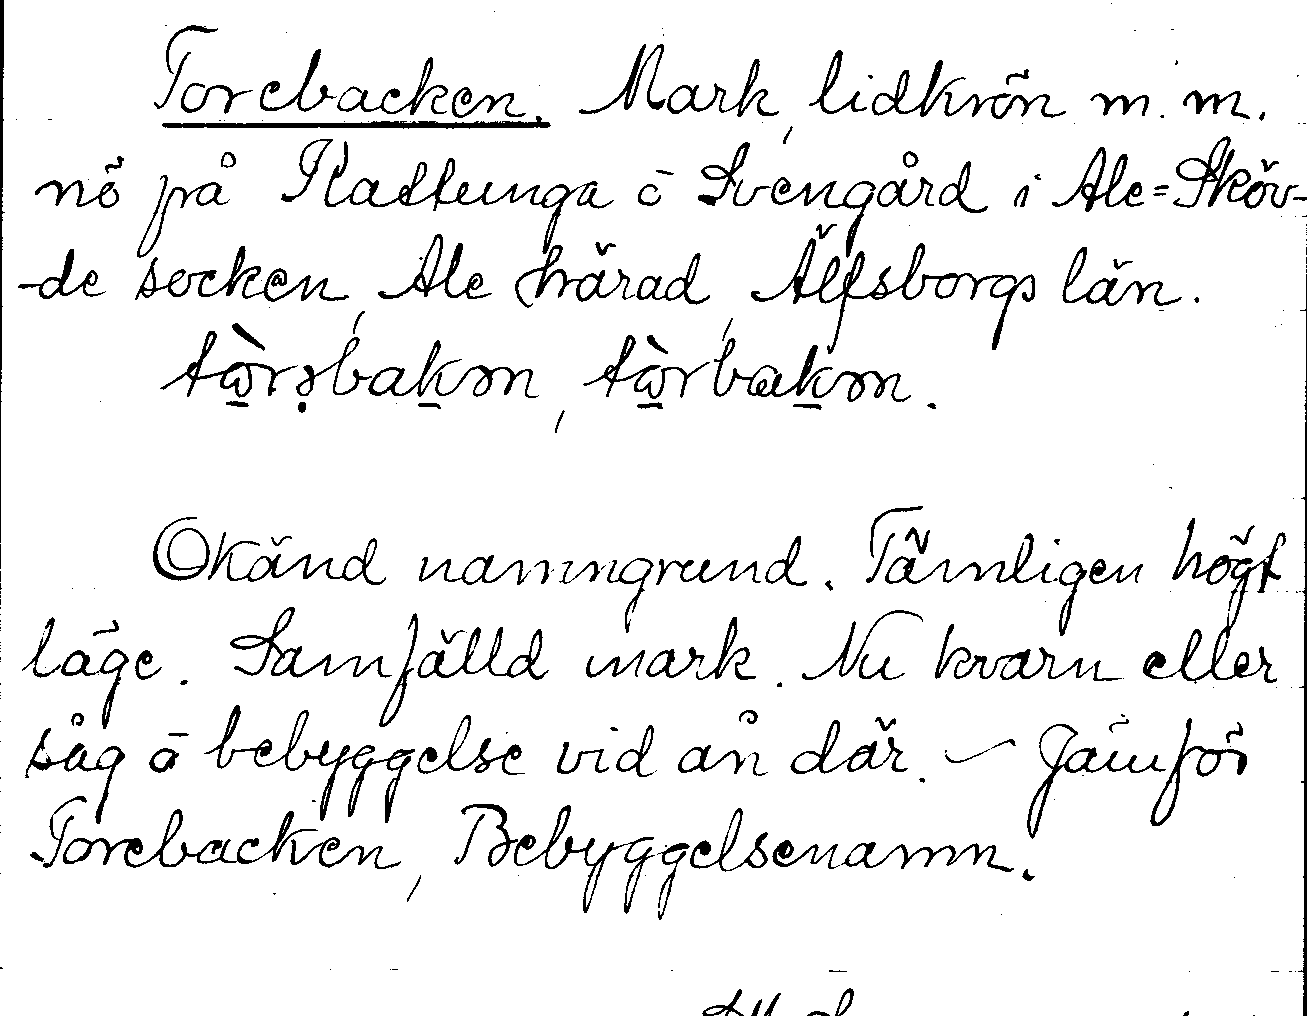 Torebacken. Mark, lidkrön m. m.
nö på Kattunga o Svengård i Ale-Sköv-
-de socken, Ale härad, Älfsborgs län.
Okänd namngrund. Tämligen högt
läge. Samfälld mark. Nu kvarn eller
såg o bebyggelse vid ån där. – Jämför
Torebacken, Bebyggelsenamn.